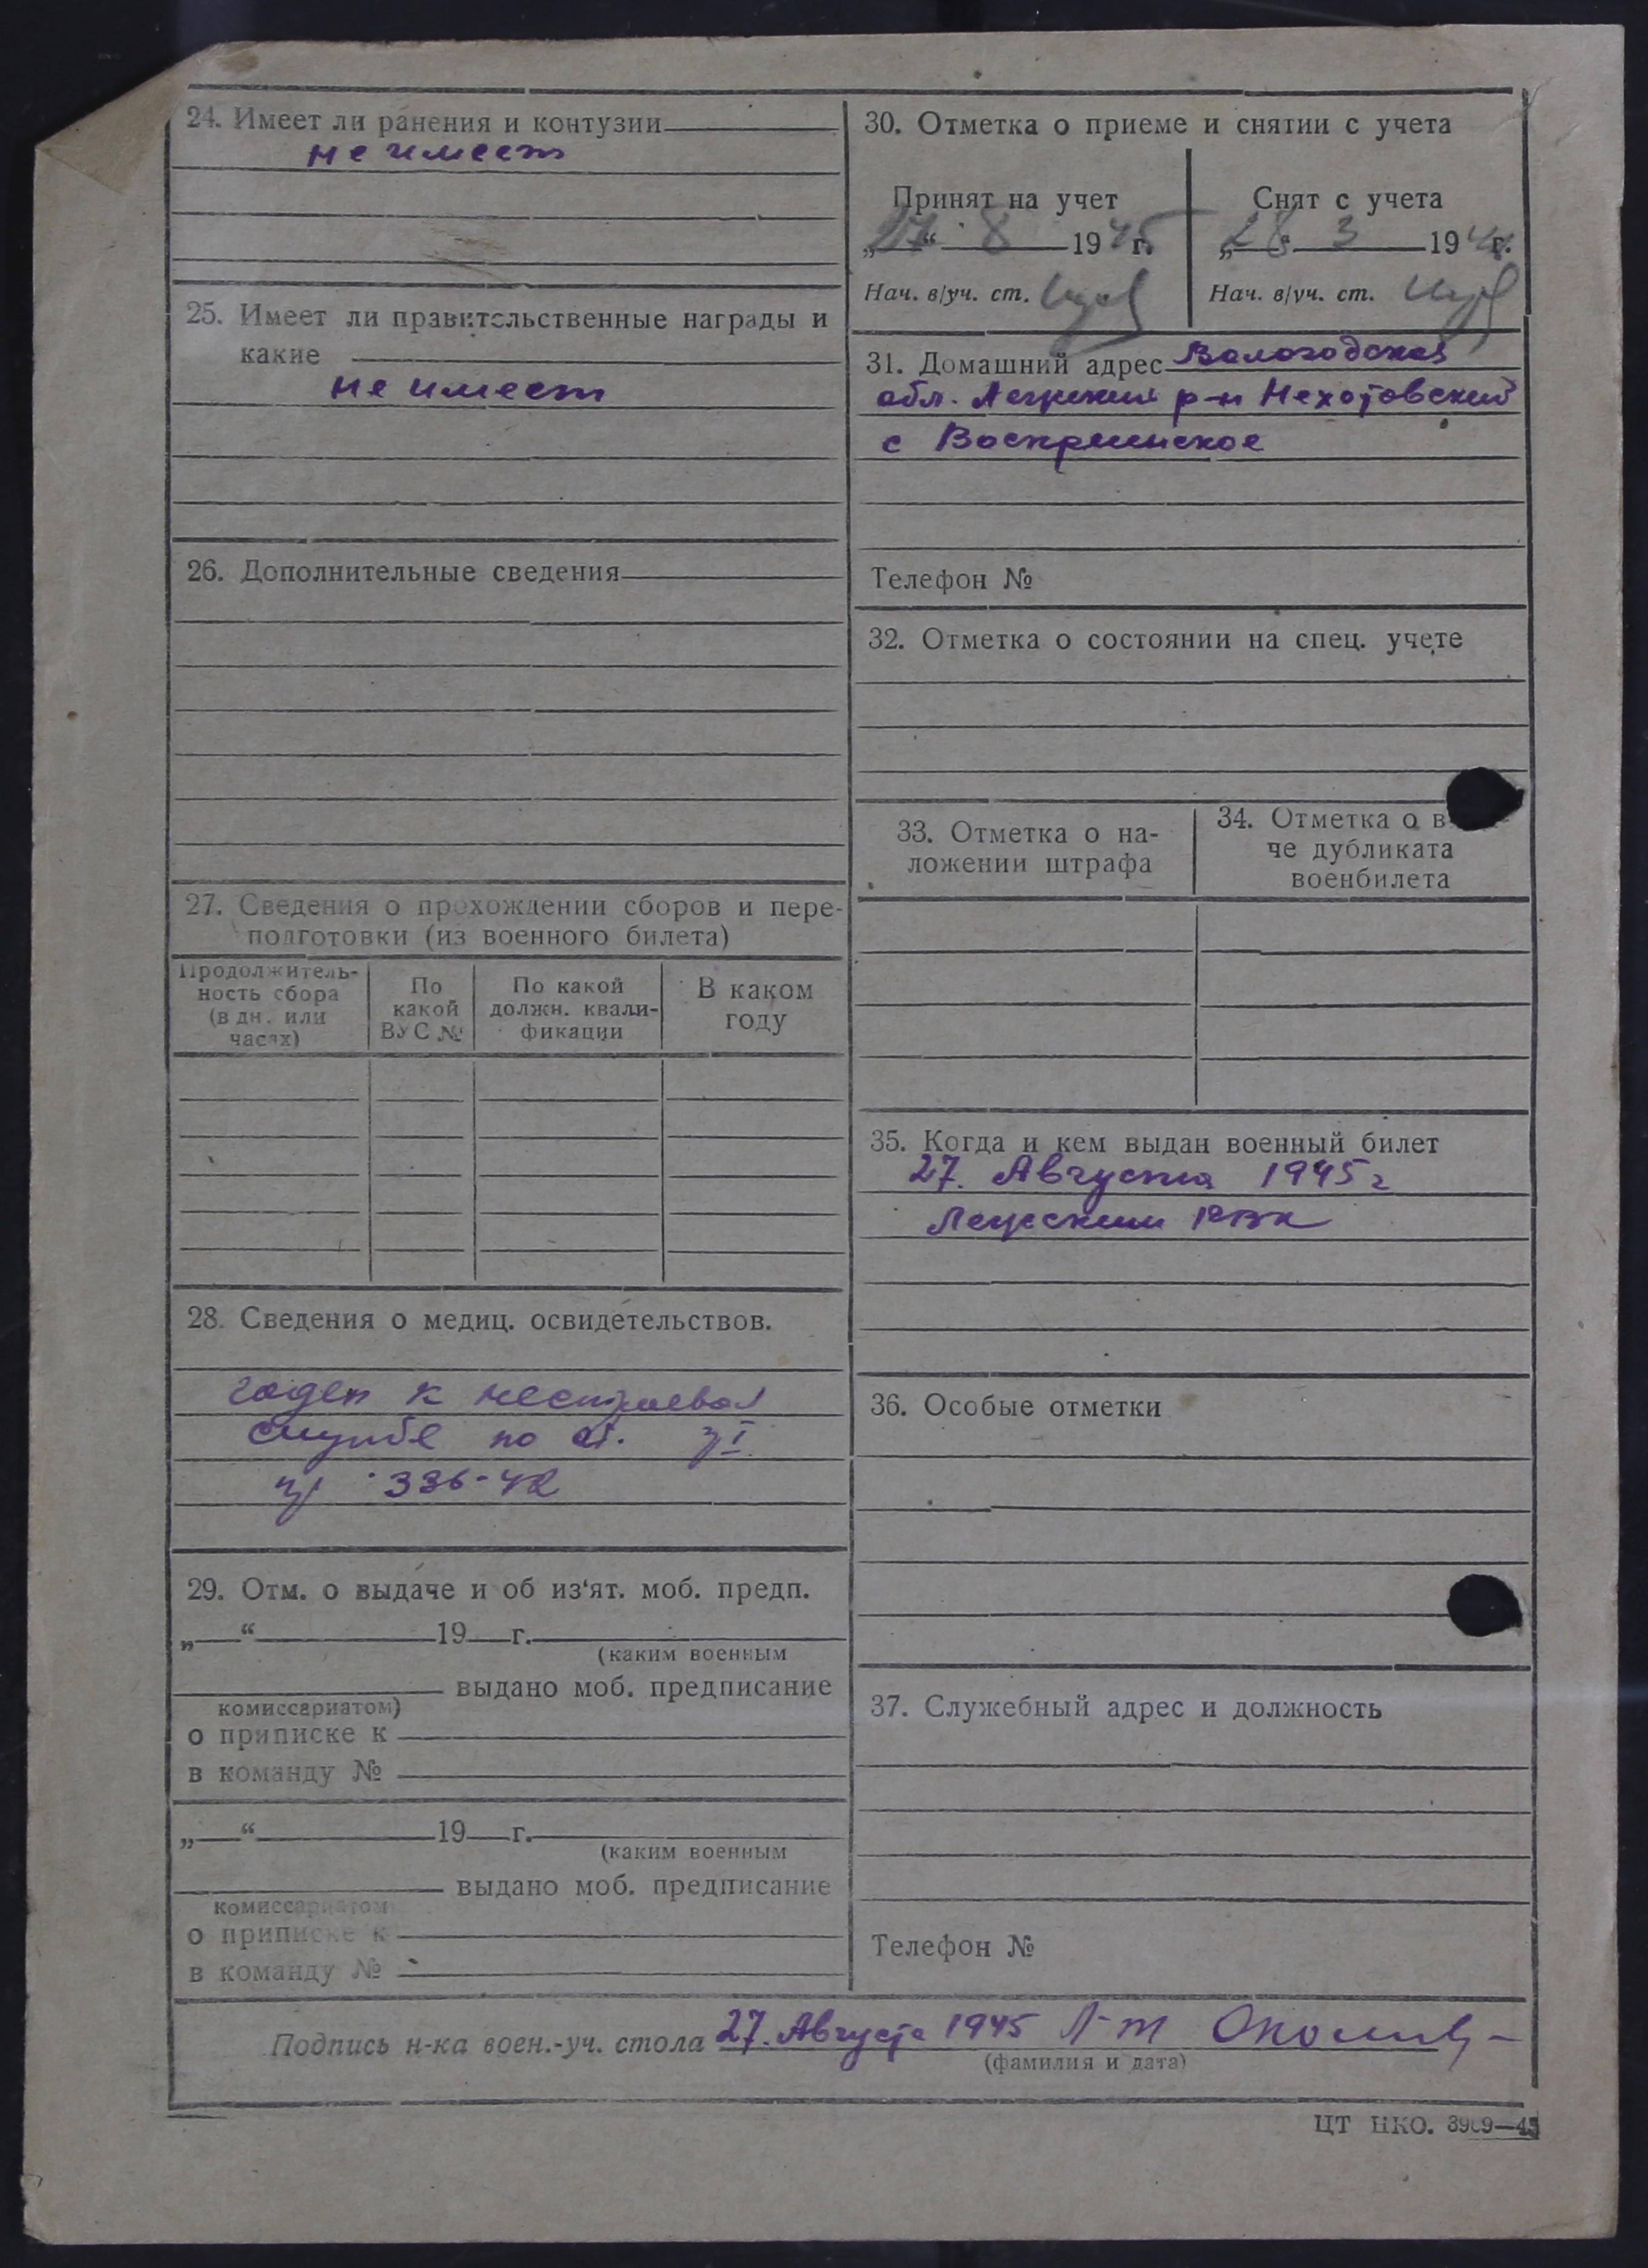 24. Имеет ли ранения и контузии
не имеет
25. Имеет ли правительственные награды и
какие
не имеет
26. Дополнительные сведения
27. Сведения о прохождении сборов и пере-
подготовки (из военного билета)
Продолжитель-
ность сбора
(в дн. или
часах)
По
какой
ВУС №
По какой
должн. квали-
фикации
В каком
году
28. Сведения о медиц. освидетельствов.
годен к нестроевой
службе по ст. I
336-42
29. Отм. о выдаче и об из‘ят. моб. предп.
„ “ 19 г.
(каким военным
выдано моб. предписание
комиссариатом)
о приписке к
в команду №
„ “ 19 г.
(каким военным
выдано моб. предписание
комиссариатом
о приписке к
в команду №
30. Отметка о приеме и снятии с учета
Принят на учет
„27“ 8 1945 г.
Нач. в/уч. ст.
Снят с учета
„28 3 194 г.
Нач. в/уч. ст.
31. Домашний адрес Вологодская
обл. р-н Нехотовский
с Воскресенское
Телефон №
32. Отметка о состоянии на спец. учете
33. Отметка о на-
ложении штрафа
34. Отметка о в
че дубликата
военбилета
35. Когда и кем выдан военный билет
27. Августа 1945 г
РВК
36. Особые отметки
37. Служебный адрес и должность
Телефон №
Подпись н-ка воен.-уч. стола 27. Августа 1945 Л-т
(фамилия и дата)
ЦТ НКО. 3969—45